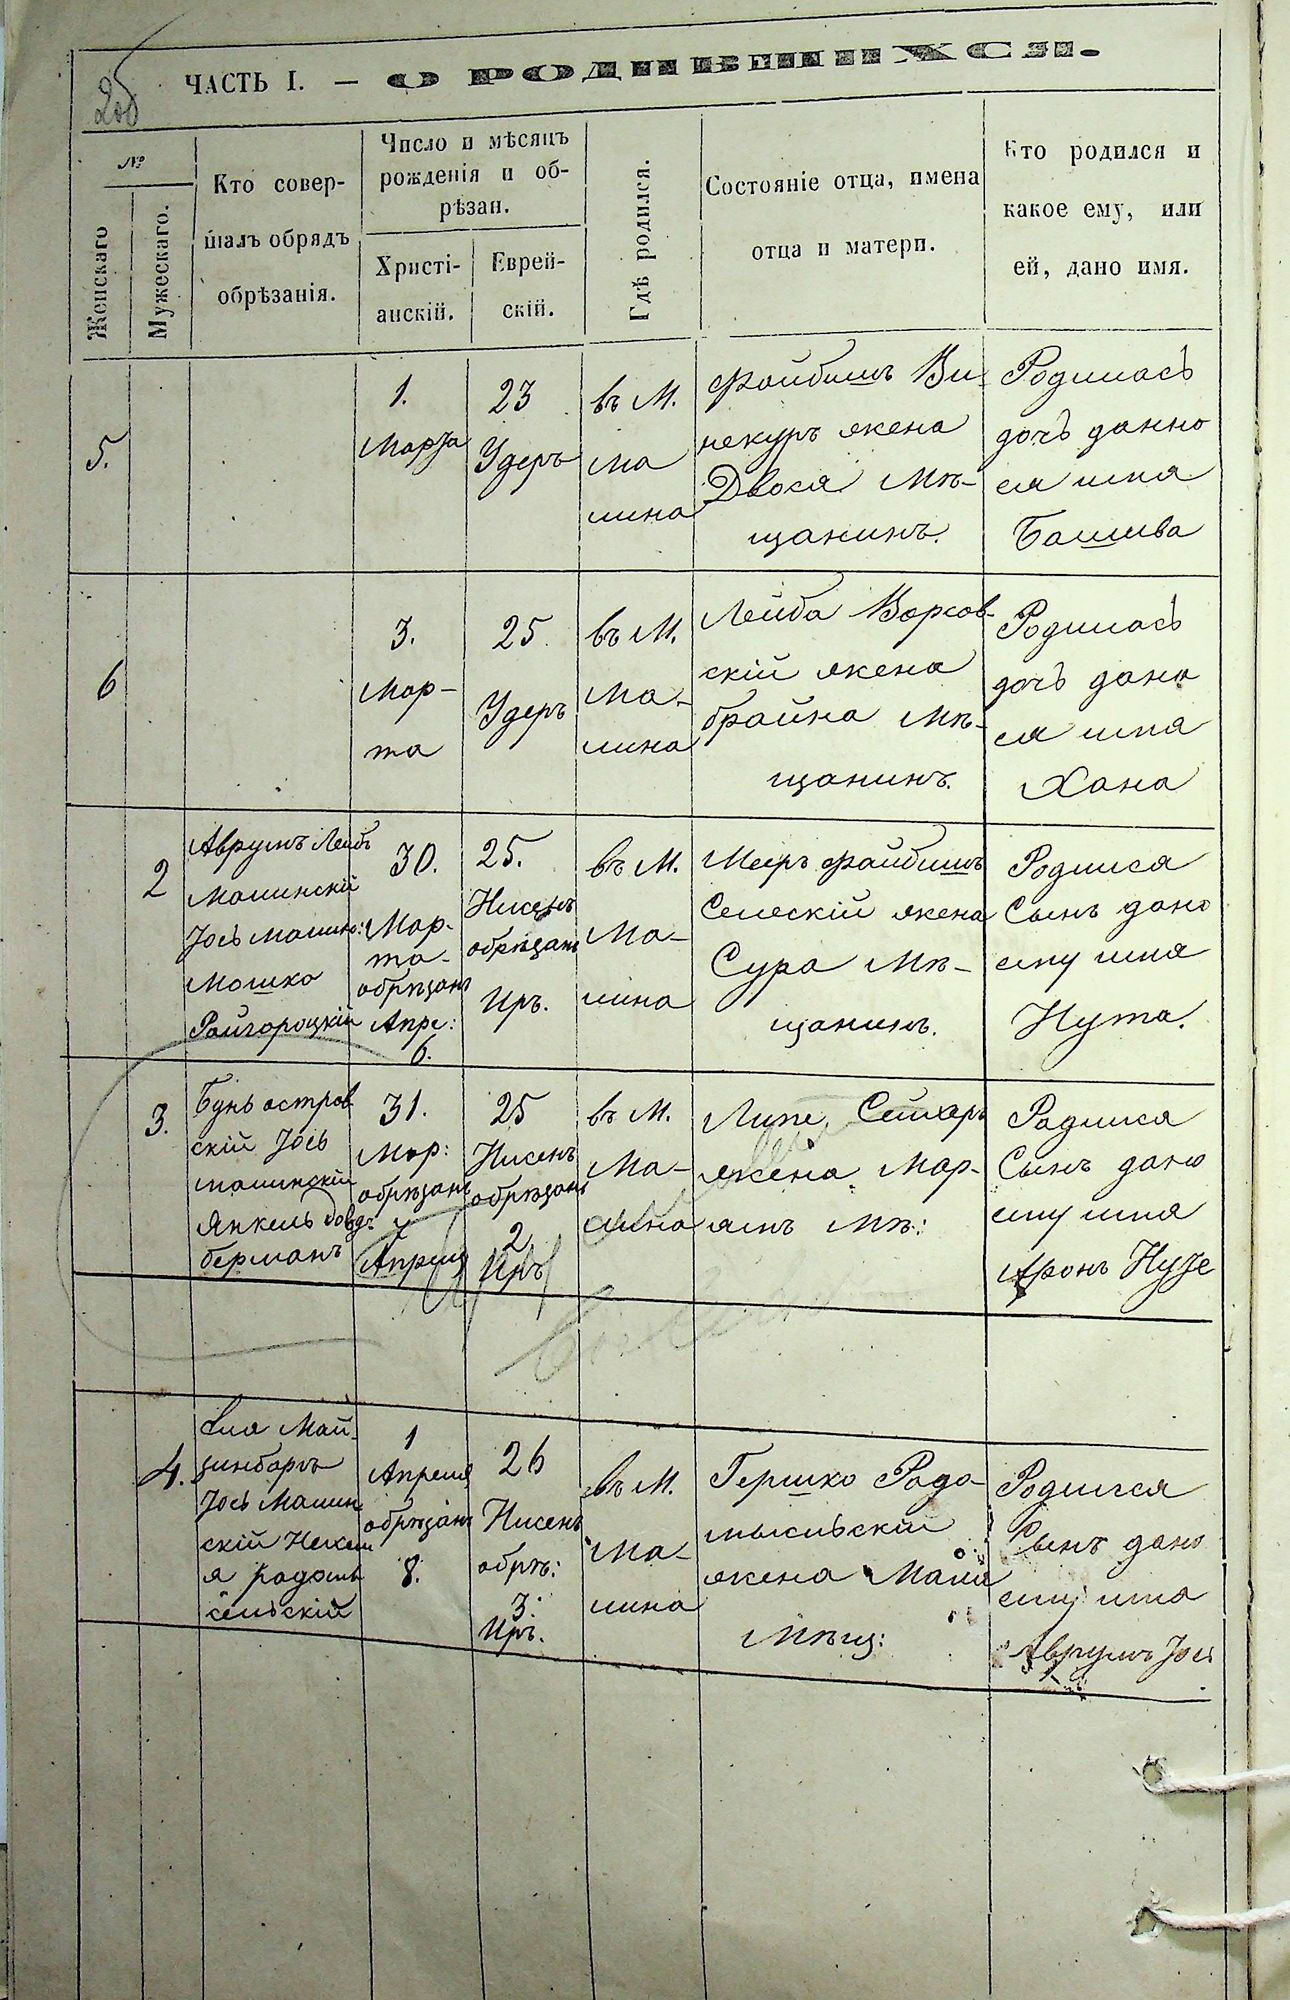 ЧАСТЬ I. — О РОДИВШИХСЯ.
№
Женскаго
Мужескаго.
Кто совер-
шалъ обрядъ
обрѣзанія.
Число и мѣсяцъ
рожденія и об-
рѣзан.
Христі-
анскій.
Еврей-
скій.
Гдѣ родился.
Состояніе отца, имена
отца и матери.
Кто родился и
какое ему, или
ей, дано имя.
5.
1.
Марта
23
Удеръ
въ М.
Ма
лина
Файбишъ Ви-
некуръ жена
Двося Мѣ-
щанинъ.
Родилась
дочь данно
ея имя
Башива
6
3.
Мар-
та
25
Удеръ
въ М.
Ма-
лина
Лейба Ворсов-
скій жена
брайна Мѣ-
щанинъ.
Родилась
дочь дано
ея имя
Хана
2
Аврумъ Лейб
Малинскій
Іось Малин:
Мошко
Райгороцкій
30.
Мар-
та-
обрѣзанъ
Апре:
6.
25.
Нисенъ
обрѣзанъ
Иръ.
въ М.
Ма-
лина
Меиръ Файбишъ
жена
Сура Мѣ-
щанинъ.
Родился
Сынъ дано
ему имя
Нута.
3.
Бунь остров
скій Іось
малинскій
Янкель Довдъ
берманъ
31.
Мар:
обрѣзанъ
7
Апреля
25
Нисенъ
обрѣзанъ
2
Иръ
въ М.
Ма-
лина
Липе
жена Мар-
ямъ Мѣ:
Родился
Сынъ дано
ему имя
Аронъ Нуте
4.
Май-
Іось Малин
скій
1
Апреля
обрѣзанъ
8.
26
Нисенъ
обрѣ:
3:
Иръ.
въ М.
Ма-
лина
Гершко Радо-
мысльскій
жена
Мѣщ:
Родился
Сынъ дано
ему имя
Аврумъ Іось